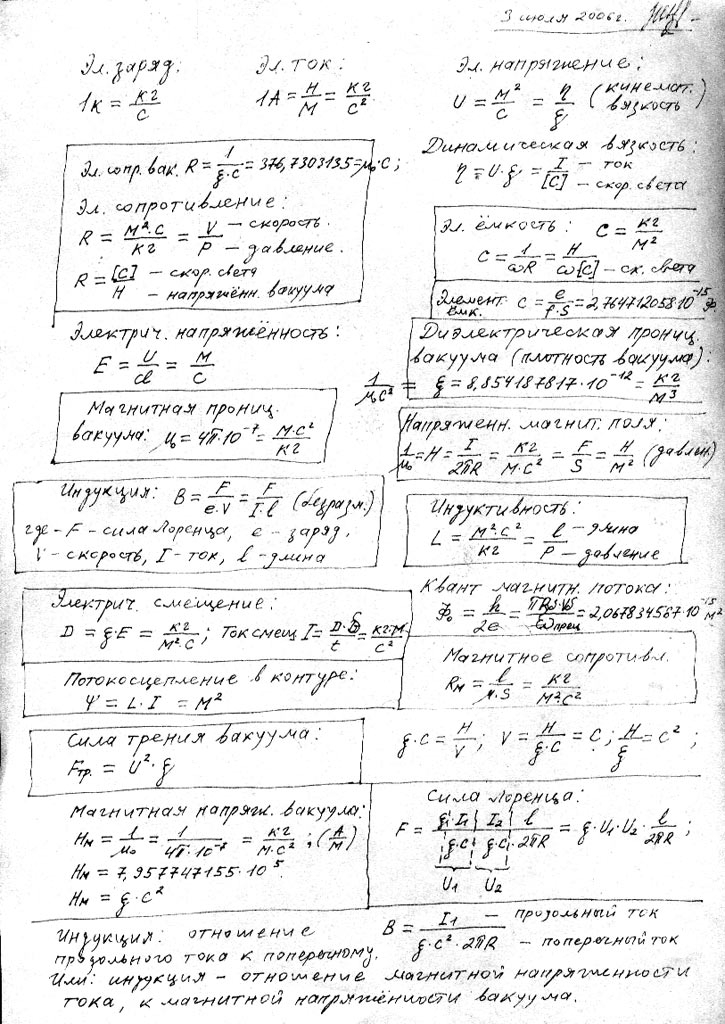 3 июля 2006г.
Эл. заряд:
1К = кг/с
Эл. ток:
1А = Н/м = кг/с²
Эл. напряжение:
U = м²/с = η/ξ (кинемат. вязкость)
Эл. сопр. вак. R = 1/(ξ·c) = 376,7303135 = μ₀·c;
Эл. сопротивление:
R = м²·с/кг = V/P — скорость. — давление.
R = [C]/H — скор. света — напряжённ. вакуума
Динамическая вязкость:
η = U·ξ = I/[C] — ток — скор. света
Эл. ёмкость: C = кг/м²
C = 1/(ωR) = H/(ω[C]) — ск. света
Элемент ёмк. C = e/(f·S) = 2,764712058·10⁻¹⁵ Ф
Электрич. напряжённость:
E = U/d = м/с
Диэлектрическая прониц.
вакуума (плотность вакуума):
1/(μ₀c²) = ξ = 8,854187817·10⁻¹² = кг/м³
Магнитная прониц.
вакуума: μ₀ = 4π·10⁻⁷ = м·с²/кг
Напряженн. магнит. поля:
1/μ₀ = H = I/(2πR) = кг/(м·с²) = F/S = Н/м² (давлен.)
Индукция: B = F/(e·V) = F/(I·l) (безразм.)
где – F – сила Лоренца, e – заряд,
V – скорость, I – ток, l – длина
Индуктивность:
L = м²·с²/кг = l/P — длина — давление
Электрич. смещение:
D = ξ·E = кг/(м²·с); Ток смещ I = D·S/t = кг·м/с²
Квант магнитн. потока:
Ф₀ = h/2e = = 2,067834567·10⁻¹⁵ м²
Потокосцепление в контуре:
Ψ = L·I = м²
Магнитное сопротивл.
Rм = l/(μ·S) = кг/(м²·с²)
Сила трения вакуума:
Fтр. = U²·ξ
ξ·c = H/V; V = H/(ξ·c) = C; H/ξ = C²;
Магнитная напряж. вакуума:
Hм = 1/μ₀ = 1/(4π·10⁻⁷) = кг/(м·с²); (А/м)
Hм = 7,957747155·10⁵.
Hм = ξ·c²
Сила Лоренца:
F = (ξ·I₁/ξ·c)·(I₂/ξ·c)·l/2πR = ξ·U₁·U₂·l/2πR;
U₁ U₂
Индукция: отношение
продольного тока к поперечному.
B = I₁/(ξ·c²·2πR) — продольный ток — поперечный ток
Или: индукция – отношение магнитной напряженности
тока, к магнитной напряжённости вакуума.